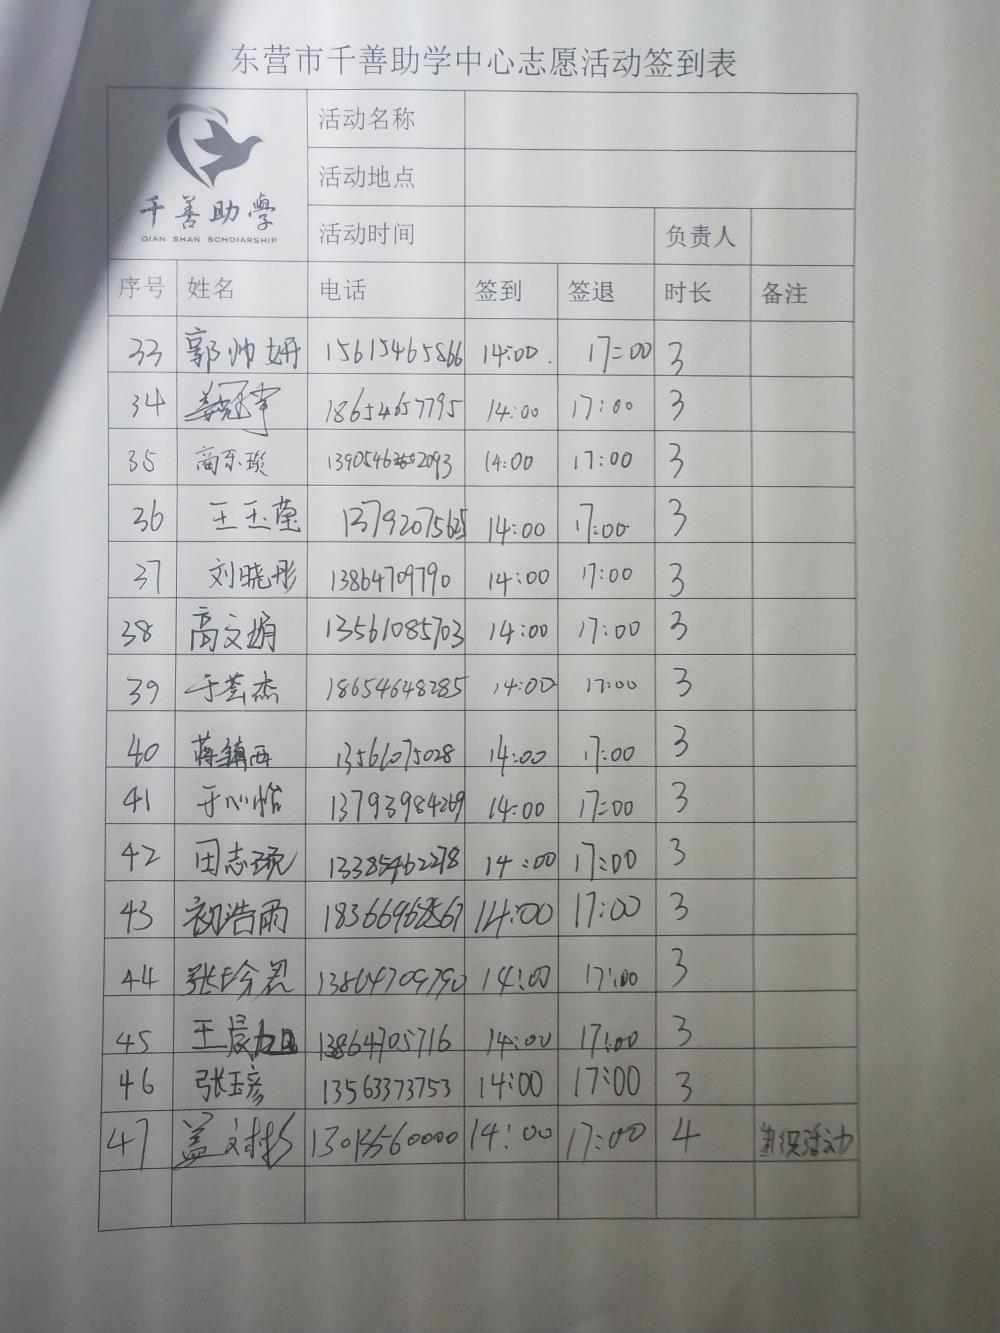 东营市千善助学中心志愿活动签到表
千善助學
QIAN SHAN SCHOlARSHIP
活动名称
活动地点
活动时间 负责人
序号 姓名 电话 签到 签退 时长 备注
33 郭帅妍 15615465866 14:00 17:00 3
34 姜冠宇 18654657795 14:00 17:00 3
35 商乐琰 14:00 17:00 3
36 王玉莹 13792075625 14:00 17:00 3
37 刘晓彤 13864709790 14:00 17:00 3
38 高文娟 13561085703 14:00 17:00 3
39 于芸杰 18654648285 14:00 17:00 3
40 蒋镇西 13561075028 14:00 17:00 3
41 于心怡 13793984269 14:00 17:00 3
42 田志琬 13385462278 14:00 17:00 3
43 初浩雨 14:00 17:00 3
44 张玲君 13864709790 14:00 17:00 3
45 王晨旭 13864705716 14:00 17:00 3
46 张玉彦 13563373753 14:00 17:00 3
47 盖文彬 14:00 17:00 4 组织活动